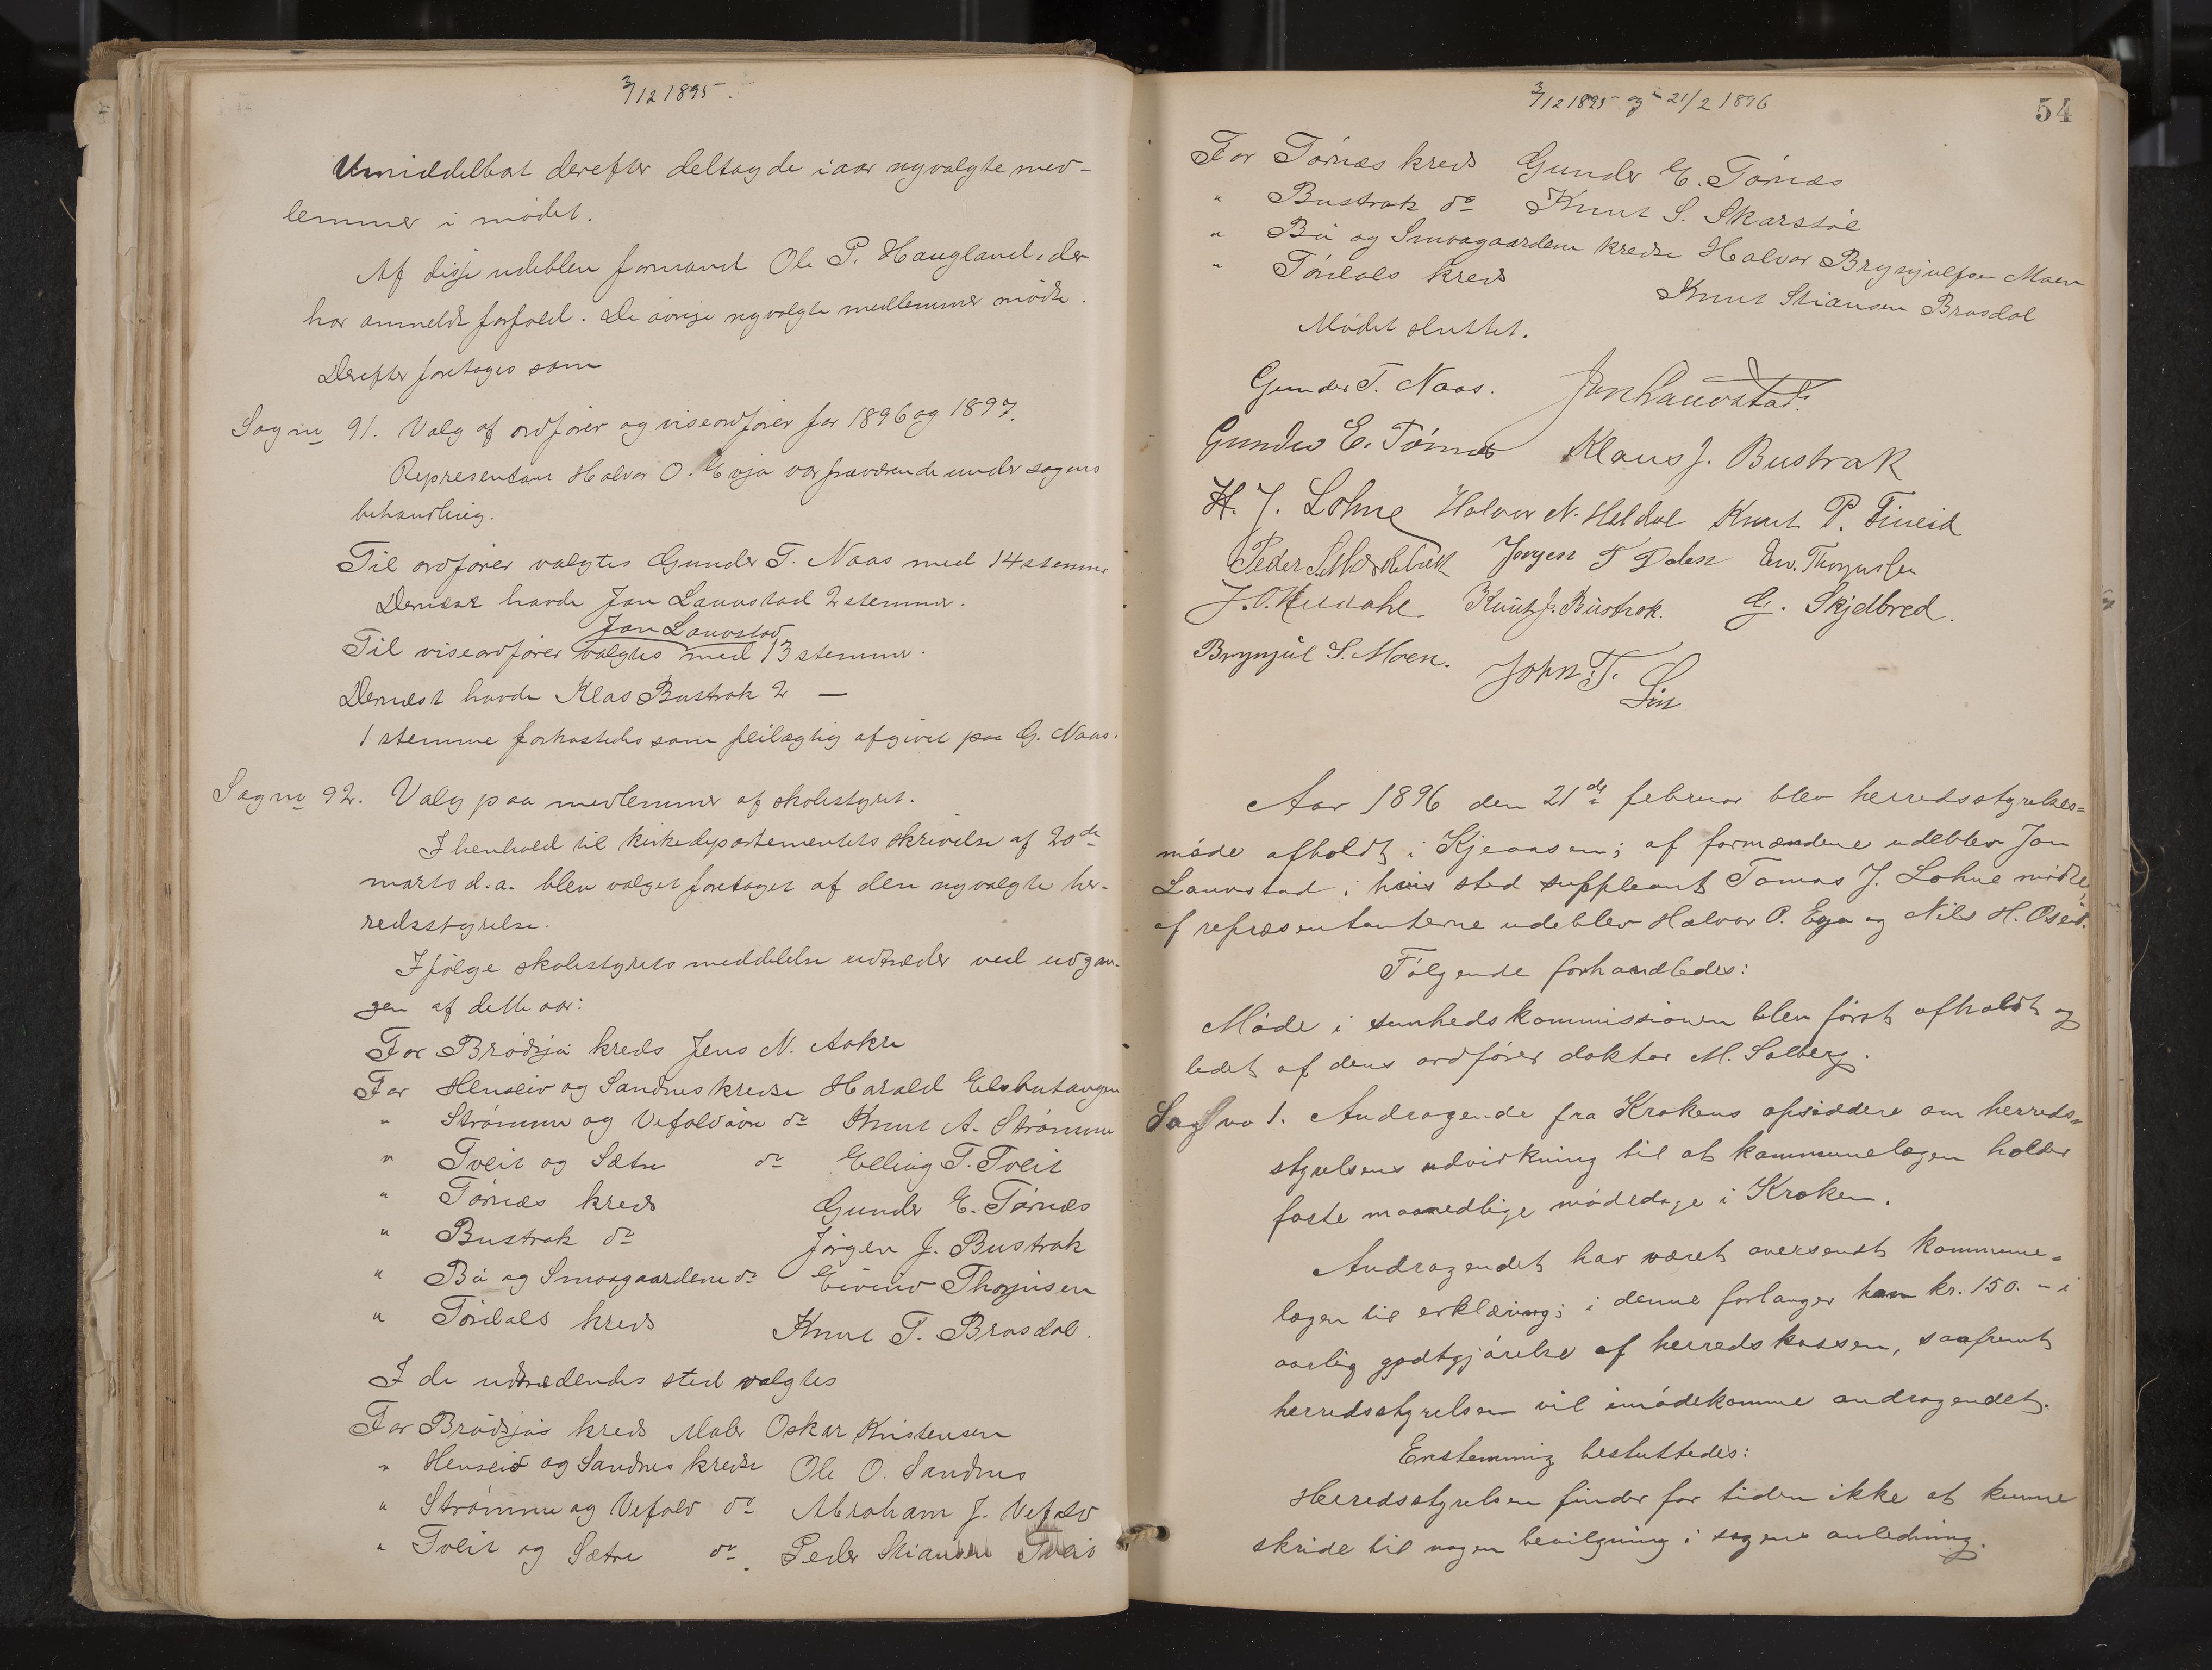 3/12 1895.
Umiddelbat derefter deltog de i aar nyvalgte med-
lemmer i mødet.
Af disse udeblev formand Ole P. Haugland, der
har anmeldt forfald. De øvrige nyvalgte medlemmer mødte.
Derefter foretoges som
Sag no 91. Valg af ordfører og viseordfører for 1896 og 1897.
Representant Halvor O. Eoja var fraværende under sagens
behandling.
Til ordfører valgtes Gunder T. Naas med 14 stemmer
Dernæst havde Jon Lauvstad 2 stemmer.
Jon Lauvstad
Til viseordfører valgtes med 13 stemmer.
Dernæst havde Klas Bustrak 2 —
1 stemme forkastedes som feilagtig afgivet paa G. Naas.
Sag no 92. Valg paa medlemmer af skolestyret.
I henhold til kirkedepartementets skrivelse af 20de
marts d.a. blev valget foretaget af den nyvalgte her-
redsstyrelse.
Ifølge skolestyrets meddelelse udtræder ved udgan-
gen af dette aar:
For Brødsjø kreds Jens N. Aakre
For Henseid og Sandnes kredse Harald Elshutangen
" Strømme og Vefaldåvn do Knut A. Strømme
" Tveit og Sætre do Elling T. Tveit
" Tørnes kreds Gunder E. Tørnes
" Bustrak do Jørgen J. Bustrak
" Bø og Smaagaardene do Eivind Thorjusen
" Tørdals kreds Knut T. Brosdal.
I de udtrædendes sted valgtes
For Brødsjøs kreds Maler Oskar Kristensen
" Henseid og Sandnes kredse Ole O. Sandnes
" Strømme og Vefald do Abraham J. Vefald
" Tveit og Sætre do Peder Stiansen Tveit
3/12 1895 og 21/2 1896
54
For Tørnæs kreds Gunder E. Tørnæs
" Bustrak do Knut S. Skarstøl
" Bø og Smaagaardene kredse Halvor Brynjulfsen Moen
" Tørdals kreds Knut Stiansen Brosdal
Mødet sluttet.
Gunder T. Naas. Jon Lauvstad.
Gunder E. Tørnes Klaus J. Bustrak
H. J. Lohne Halvor N. Heldal Knut P. Fineid
Peder S. Jørgen T Dalen Eiv. Thorjussen
Knut J. Bustrak. G. Skjelbred.
Brynjul S. Moen. John T.
Lin
Aar 1896 den 21de februar blev herredsstyrelses=
møde afholdt i Kjeaasen; af formændene udeblev Jon
Lauvstad, i hvis sted suppleant Tomas J. Lohne mødte,
af repræsentanterne udeblev Halvor O. Eoja og Nils H. Oseid.
Følgende forhandledes:
Møde i sunhedskommissionen blev først afholdt og
ledet af dens ordfører doktor M. Solberg.
Sag no 1. Andragende fra Krokens opsiddere om herreds=
styrelsens udvirkning til at kommunelægen holder
faste maanedlige mødedage i Kroken.
Andragendet har været oversendt kommune=
lægen til erklæring; i denne forlanger han kr. 150. - i
aarlig godtgjørelse af herredskassen, saafremt
herredsstyrelsen vil imødekomme andragendet.
Enstemmig besluttedes:
Herredsstyrelsen finder for tiden ikke at kunne
skride til nogen bevilgning i sagens anledning.